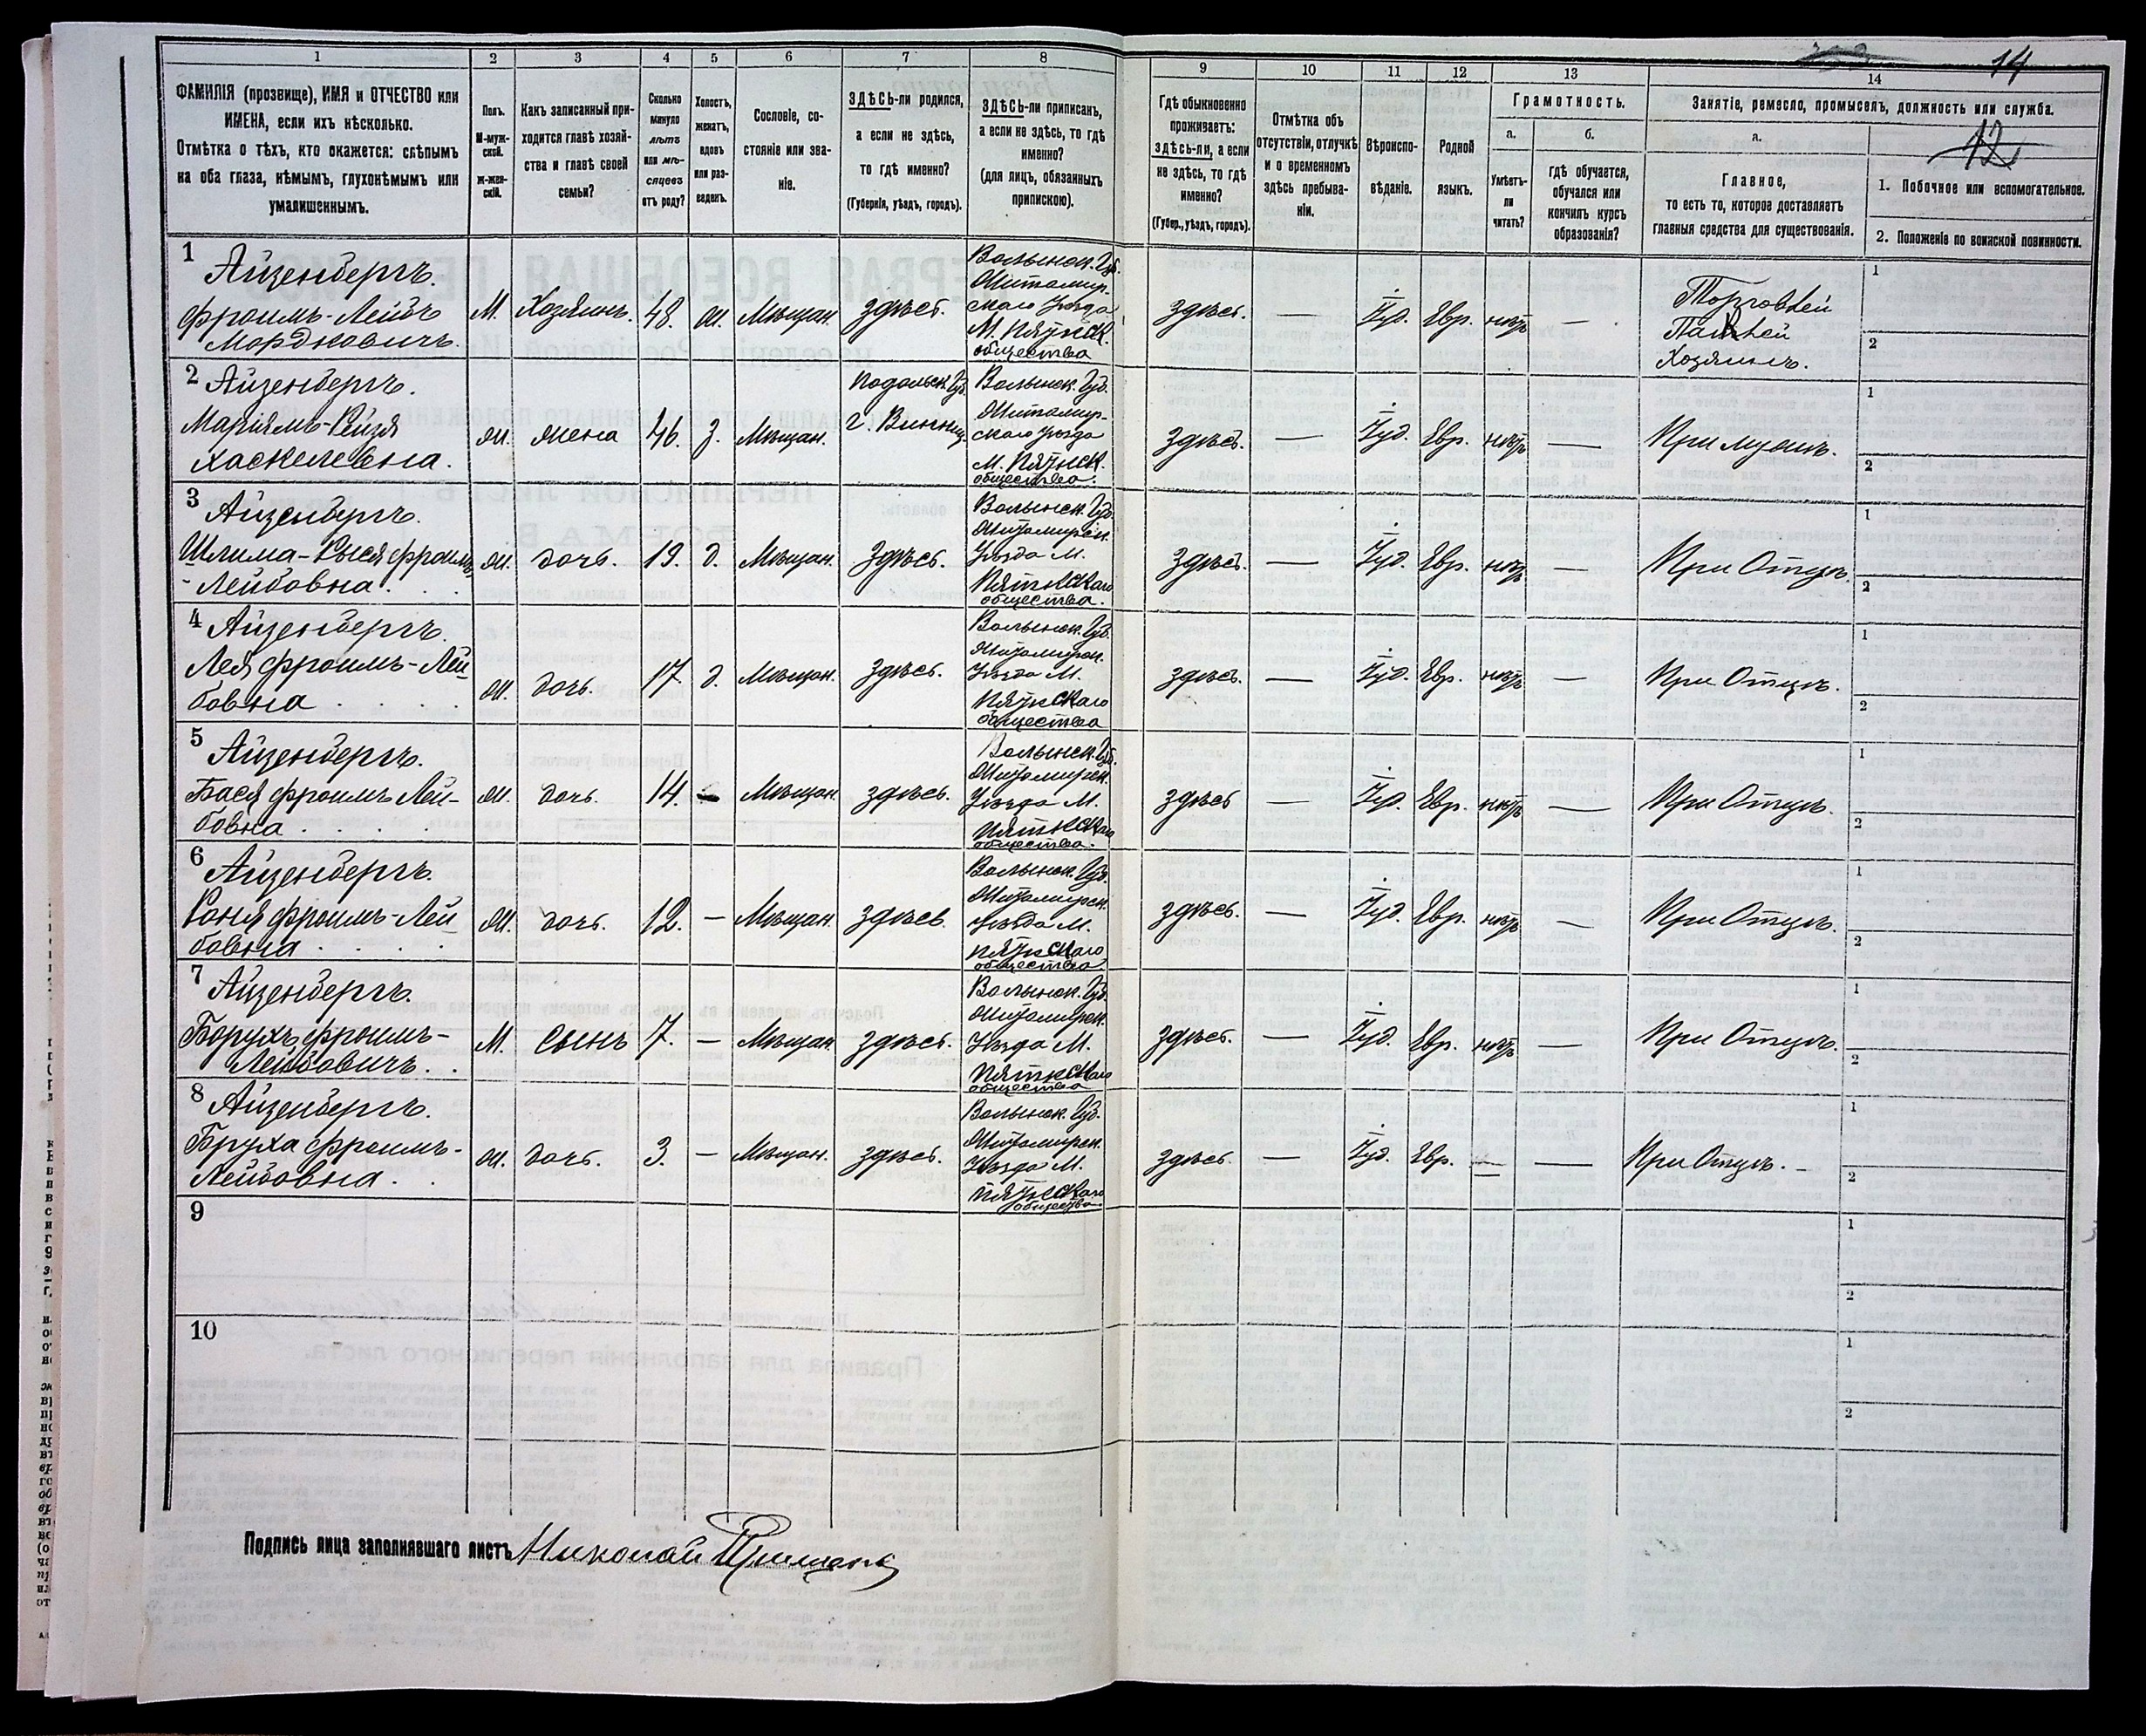 14
12
1 2 3 4 5 6 7 8 9 10 11 12 13 14
ФАМИЛІЯ (прозвище), ИМЯ и ОТЧЕСТВО или
ИМЕНА, если ихъ нѣсколько.
Отмѣтка о тѣхъ, кто окажется: слѣпымъ
на оба глаза, нѣмымъ, глухонѣмымъ или
умалишеннымъ.
Полъ.
М-муж-
ской.
ж-жен-
скій.
Какъ записанный при-
ходится главѣ хозяй-
ства и главѣ своей
семьи?
Сколько
минуло
лѣтъ
или мѣ-
сяцевъ
отъ роду?
Холостъ,
женатъ,
вдовъ
или раз-
веденъ.
Сословіе, со-
стояніе или зва-
ніе.
ЗДѢСЬ-ли родился,
а если не здѣсь,
то гдѣ именно?
(Губернія, уѣздъ, городъ).
ЗДѢСЬ-ли приписанъ,
а если не здѣсь, то гдѣ
именно?
(для лицъ, обязанныхъ
припискою).
Гдѣ обыкновенно
проживаетъ:
здѣсь-ли, а если
не здѣсь, то гдѣ
именно?
(Губер., уѣздъ, городъ).
Отмѣтка объ
отсутствіи, отлучкѣ
и о временномъ
здѣсь пребыва-
ніи.
Вѣроиспо-
вѣданіе.
Родной
языкъ.
Грамотность.
а.
Умѣетъ-
ли
читать?
б.
гдѣ обучается,
обучался или
кончилъ курсъ
образованія?
Занятіе, ремесло, промыселъ, должность или служба.
а.
Главное,
то есть то, которое доставляетъ
главныя средства для существованія.
1. Побочное или вспомогательное.
2. Положеніе по воинской повинности.
1
Айзенбергъ.
Фроимъ-Лейбъ
Мордковичъ.
М.
Хозяинъ.
48.
ж.
Мѣщан.
здѣсь.
Волынск. Губ.
Житомир-
скаго Уѣзда
М. Пятк.
общества
здѣсь.
—
Іуд.
Евр.
нѣтъ
—
Торговлей
Хозяинъ.
1
2
2
Айзенбергъ.
Маріямъ-Рейзя
Хаскелевна.
ж.
жена
46.
з.
Мѣщан.
Подольск. Губ.
г. Винниц.
Волынск. Губ.
Житомир-
скаго Уѣзда
М. Пятк.
общества.
здѣсь.
—
Іуд.
Евр.
нѣтъ
—
При мужѣ.
1
2
3
Айзенбергъ.
Шлима-Рыся Фроимъ
-Лейбовна.
ж.
дочь.
19.
д.
Мѣщан.
здѣсь.
Волынск. Губ.
Житомирск.
Уѣзда М.
Пяткскаго
общества.
здѣсь.
—
Іуд.
Евр.
нѣтъ
—
При Отцѣ.
1
2
4
Айзенбергъ.
Лея Фроимъ-Лей
бовна
ж.
дочь.
17.
д.
Мѣщан.
здѣсь.
Волынск. Губ.
Житомирск.
Уѣзда М.
Пяткскаго
общества
здѣсь.
—
Іуд.
Евр.
нѣтъ
—
При Отцѣ.
1
2
5
Айзенбергъ.
Бася Фроимъ Лей-
бовна
ж.
дочь.
14.
—
Мѣщан.
здѣсь.
Волынск. Губ.
Житомирск.
Уѣзда М.
Пяткскаго
общества.
здѣсь
—
Іуд.
Евр.
нѣтъ
—
При Отцѣ.
1
2
6
Айзенбергъ.
Роня Фроимъ-Лей
бовна
ж.
дочь.
12.
—
Мѣщан.
здѣсь.
Волынск. Губ.
Житомирск.
Уѣзда М.
Пяткскаго
общества.
здѣсь.
—
Іуд.
Евр.
нѣтъ
—
При Отцѣ.
1
2
7
Айзенбергъ.
Борухъ Фроимъ-
Лейбовичъ.
М.
Сынъ
7.
—
Мѣщан.
здѣсь.
Волынск. Губ.
Житомирск.
Уѣзда М.
Пяткскаго
общества
здѣсь.
—
Іуд.
Евр.
нѣтъ
—
При Отцѣ.
1
2
8
Айзенбергъ.
Бруха Фроимъ-
Лейбовна.
ж.
дочь.
3.
—
Мѣщан.
здѣсь.
Волынск. Губ.
Житомирск.
Уѣзда М.
Пяткскаго
общества.
здѣсь
—
Іуд.
Евр.
—
—
При Отцѣ.
1
2
9
1
2
10
1
2
Подпись лица заполнявшаго листъ Николай